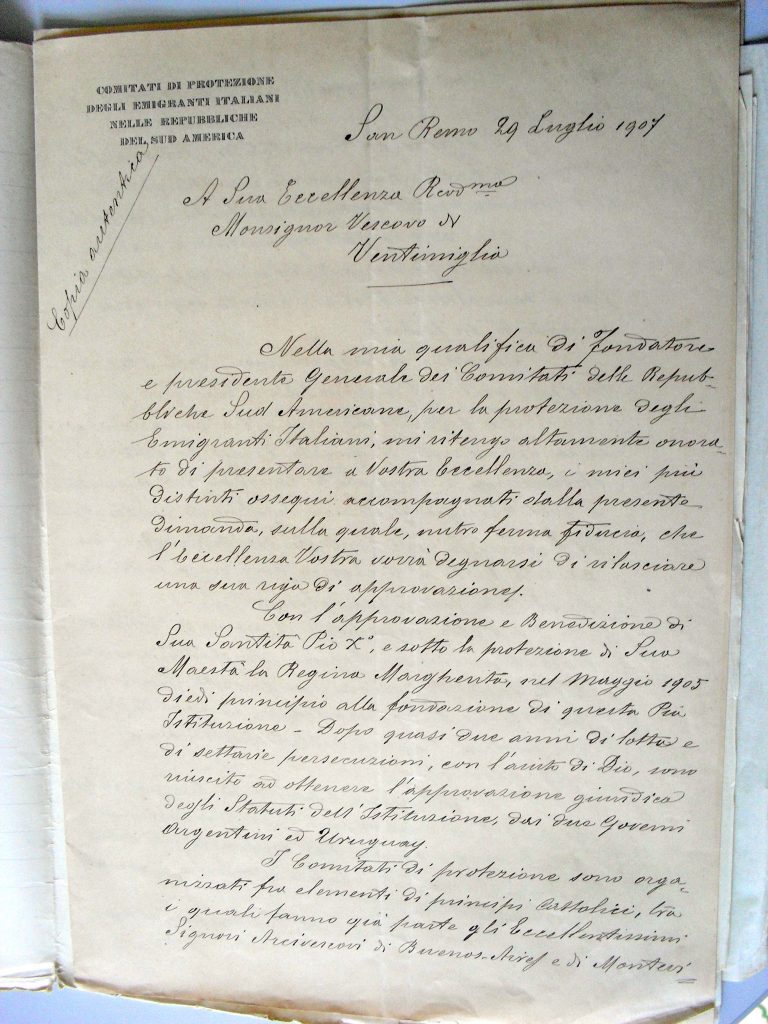 COMITATI DI PROTEZIONE
DEGLI EMIGRANTI ITALIANI
NELLE REPUBBLICHE
DEL SUD AMERICA
San Remo 29 Luglio 1907
Copia autentica
A Sua Eccellenza Revdma
Monsignor Vescovo di
Ventimiglia
Nella mia qualifica di Fondatore
e presidente Generale dei Comitati delle Repub-
bliche Sud Americane, per la protezione degli
Emigranti Italiani, mi ritengo altamente onora-
to di presentare a Vostra Eccellenza, i miei più
distinti ossequi accompagnati dalla presente
dimanda, sulla quale, nutro ferma fiducia, che
l'Eccellenza Vostra vorrà degnarsi di rilasciare
una sua riga di approvazione.
Con l'approvazione e Benedizione di
Sua Santità Pio Xo, e sotto la protezione di Sua
Maestà la Regina Margherita, nel Maggio 1905
diedi principio alla fondazione di questa Pia
Istituzione - Dopo quasi due anni di lotta e
di settarie persecuzioni, con l'aiuto di Dio, sono
riuscito ad ottenere l'approvazione giuridica
degli Statuti dell'Istituzione, dai due Governi
Argentini ed Uruguay.
I Comitati di protezione sono orga-
nizzati fra elementi di principi Cattolici, tra
i quali fanno già parte gli Eccellentissimi
Signori Arcivescovi di Buenos-Aires e di Montevi